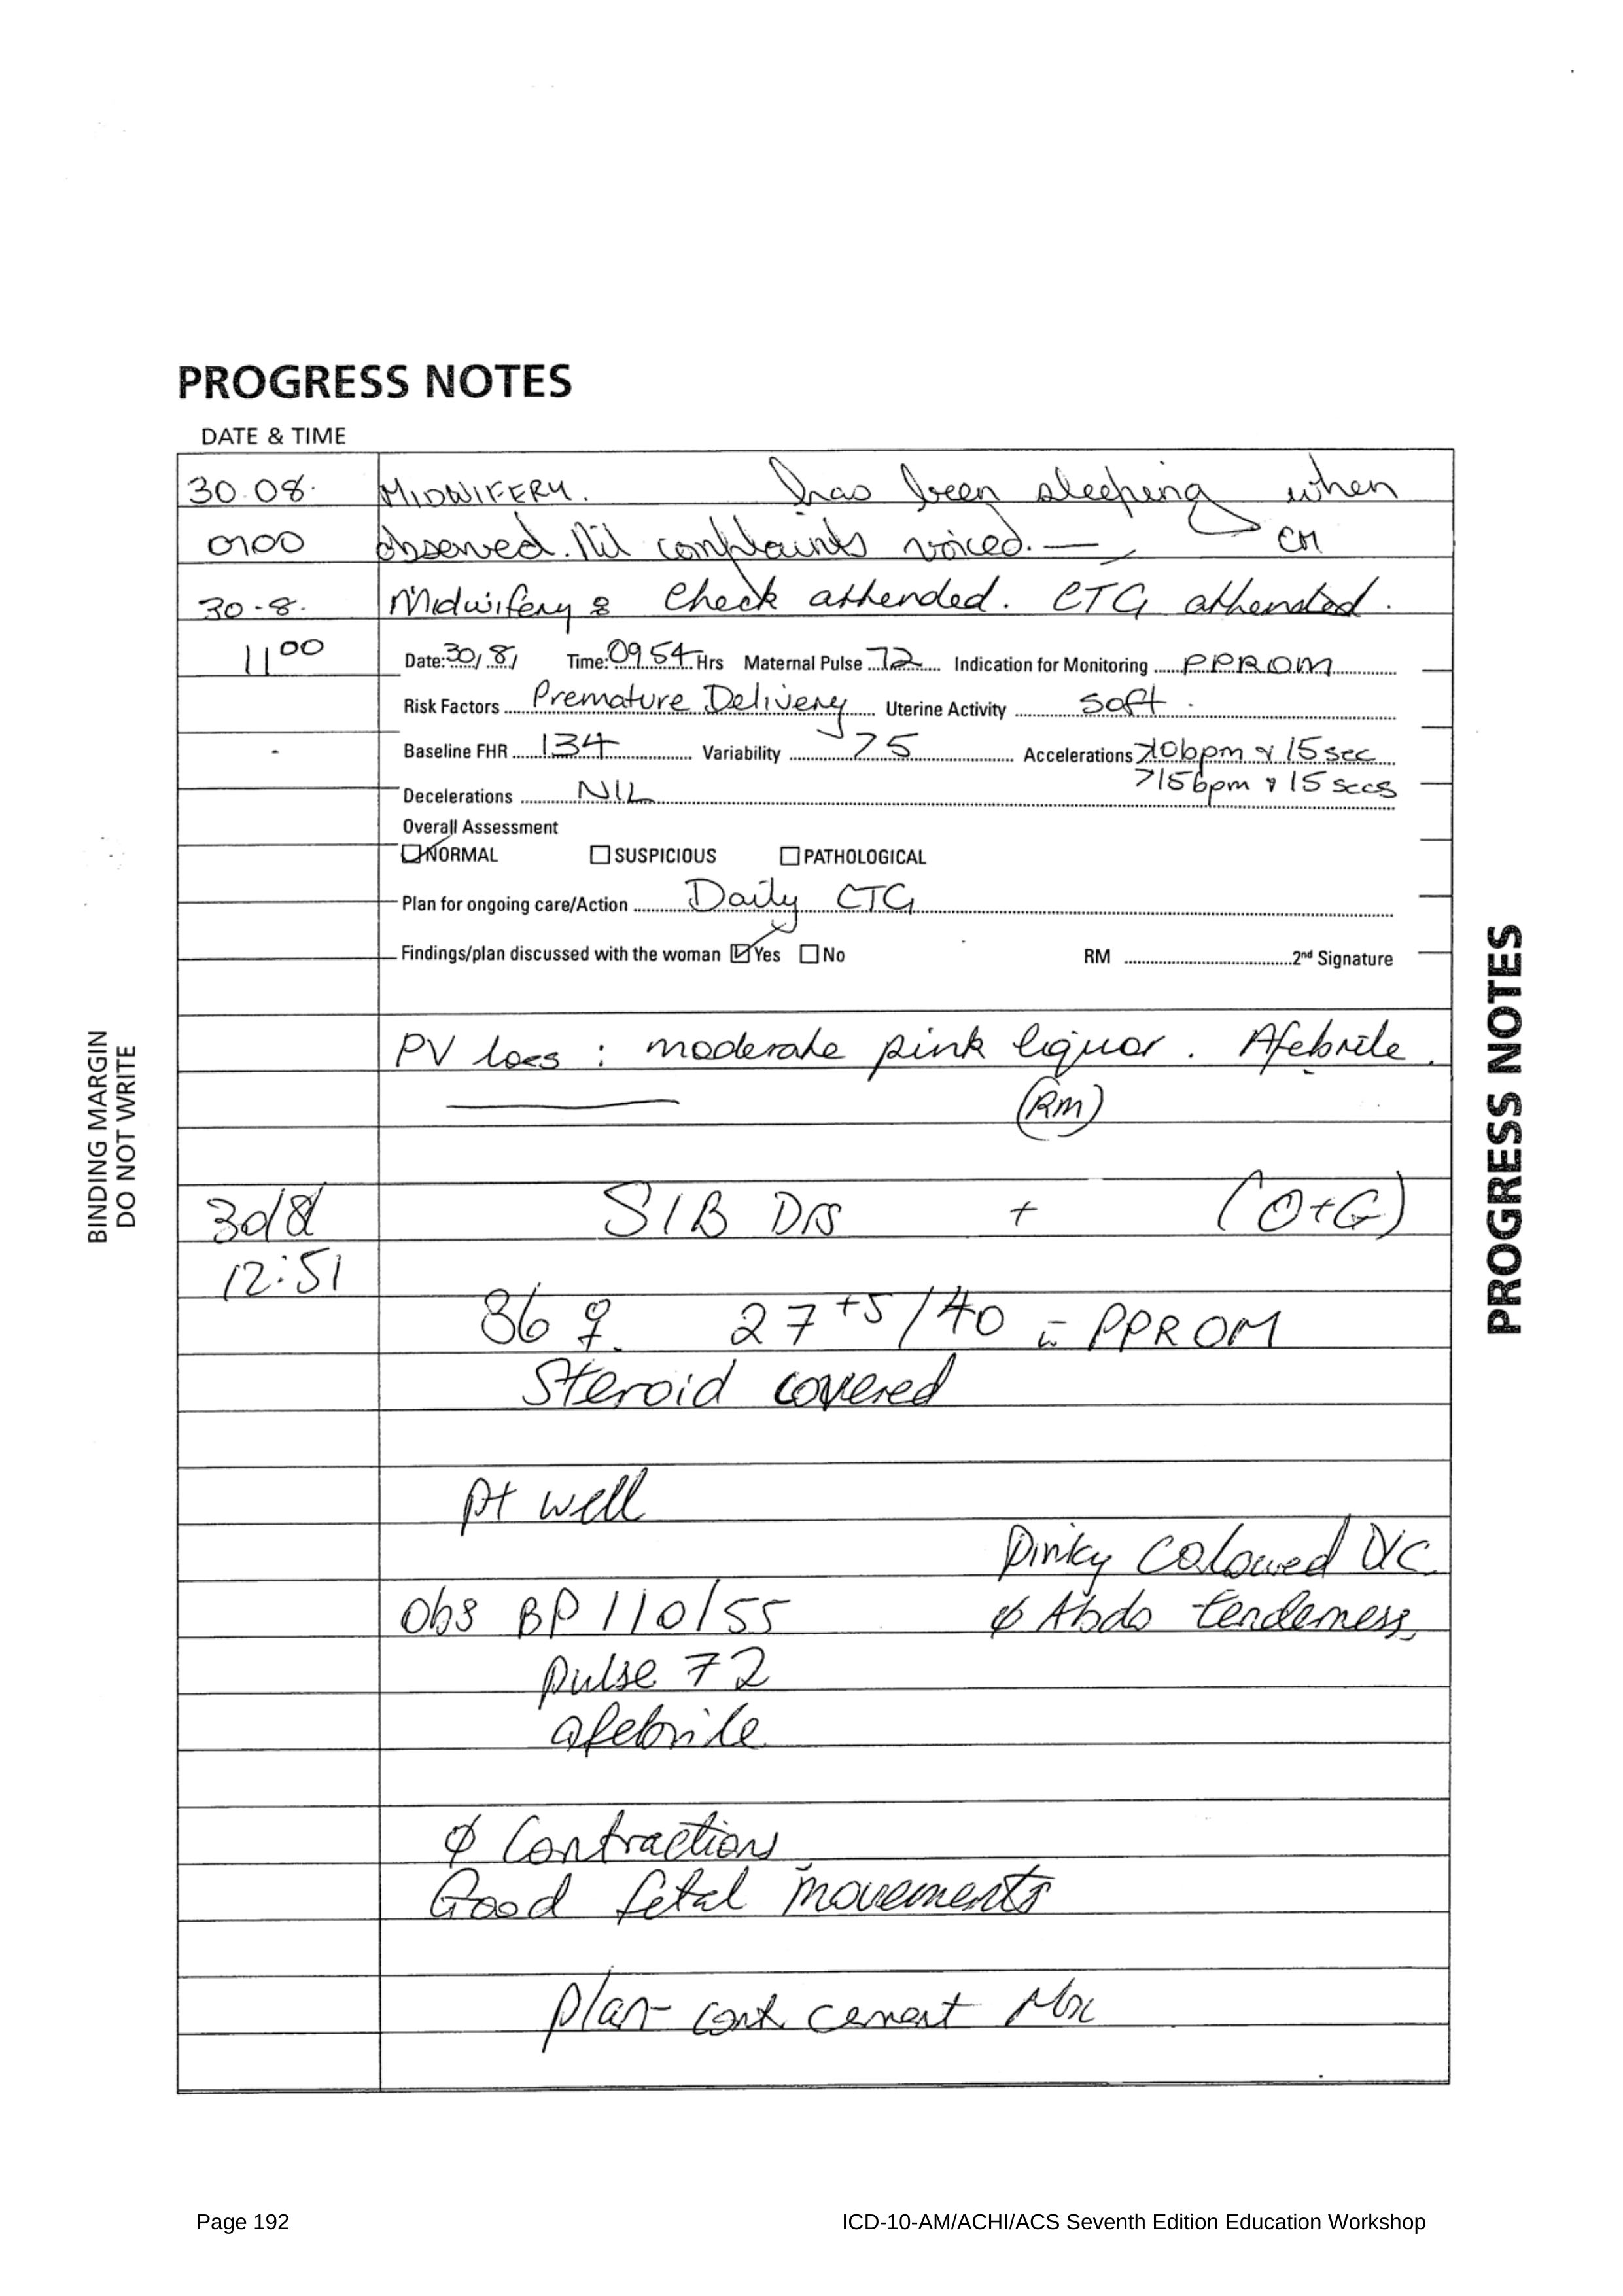 PROGRESS NOTES
DATE & TIME
30.08. MIDWIFERY. has been sleeping when
0100 observed. Nil complaints voiced. — CM
30-8. Midwifery: Check attended. CTG attended.
11 00 Date: 30/8/ Time: 0954 Hrs Maternal Pulse 72 Indication for Monitoring PPROM
Risk Factors Premature Delivery Uterine Activity soft.
Baseline FHR 134 Variability >5 Accelerations >10bpm x 15 sec
>15bpm x 15 secs
Decelerations NIL
Overall Assessment
NORMAL SUSPICIOUS PATHOLOGICAL
Plan for ongoing care/Action Daily CTG
Findings/plan discussed with the woman Yes No RM 2nd Signature
PV loss : moderate pink liquor. Afebrile.
(RM)
30/8 S/B Drs + (O+G)
12:51
36 ♀ 27 +5/40 c̄ PPROM
Steroid covered
pt well
Pinky Coloured D/C
Obs BP 110/55 ∅ Abdo tenderness
pulse 72
afebrile
∅ Contractions
Good fetal movements
plan - cont current Mx
BINDING MARGIN
DO NOT WRITE
PROGRESS NOTES
Page 192 ICD-10-AM/ACHI/ACS Seventh Edition Education Workshop